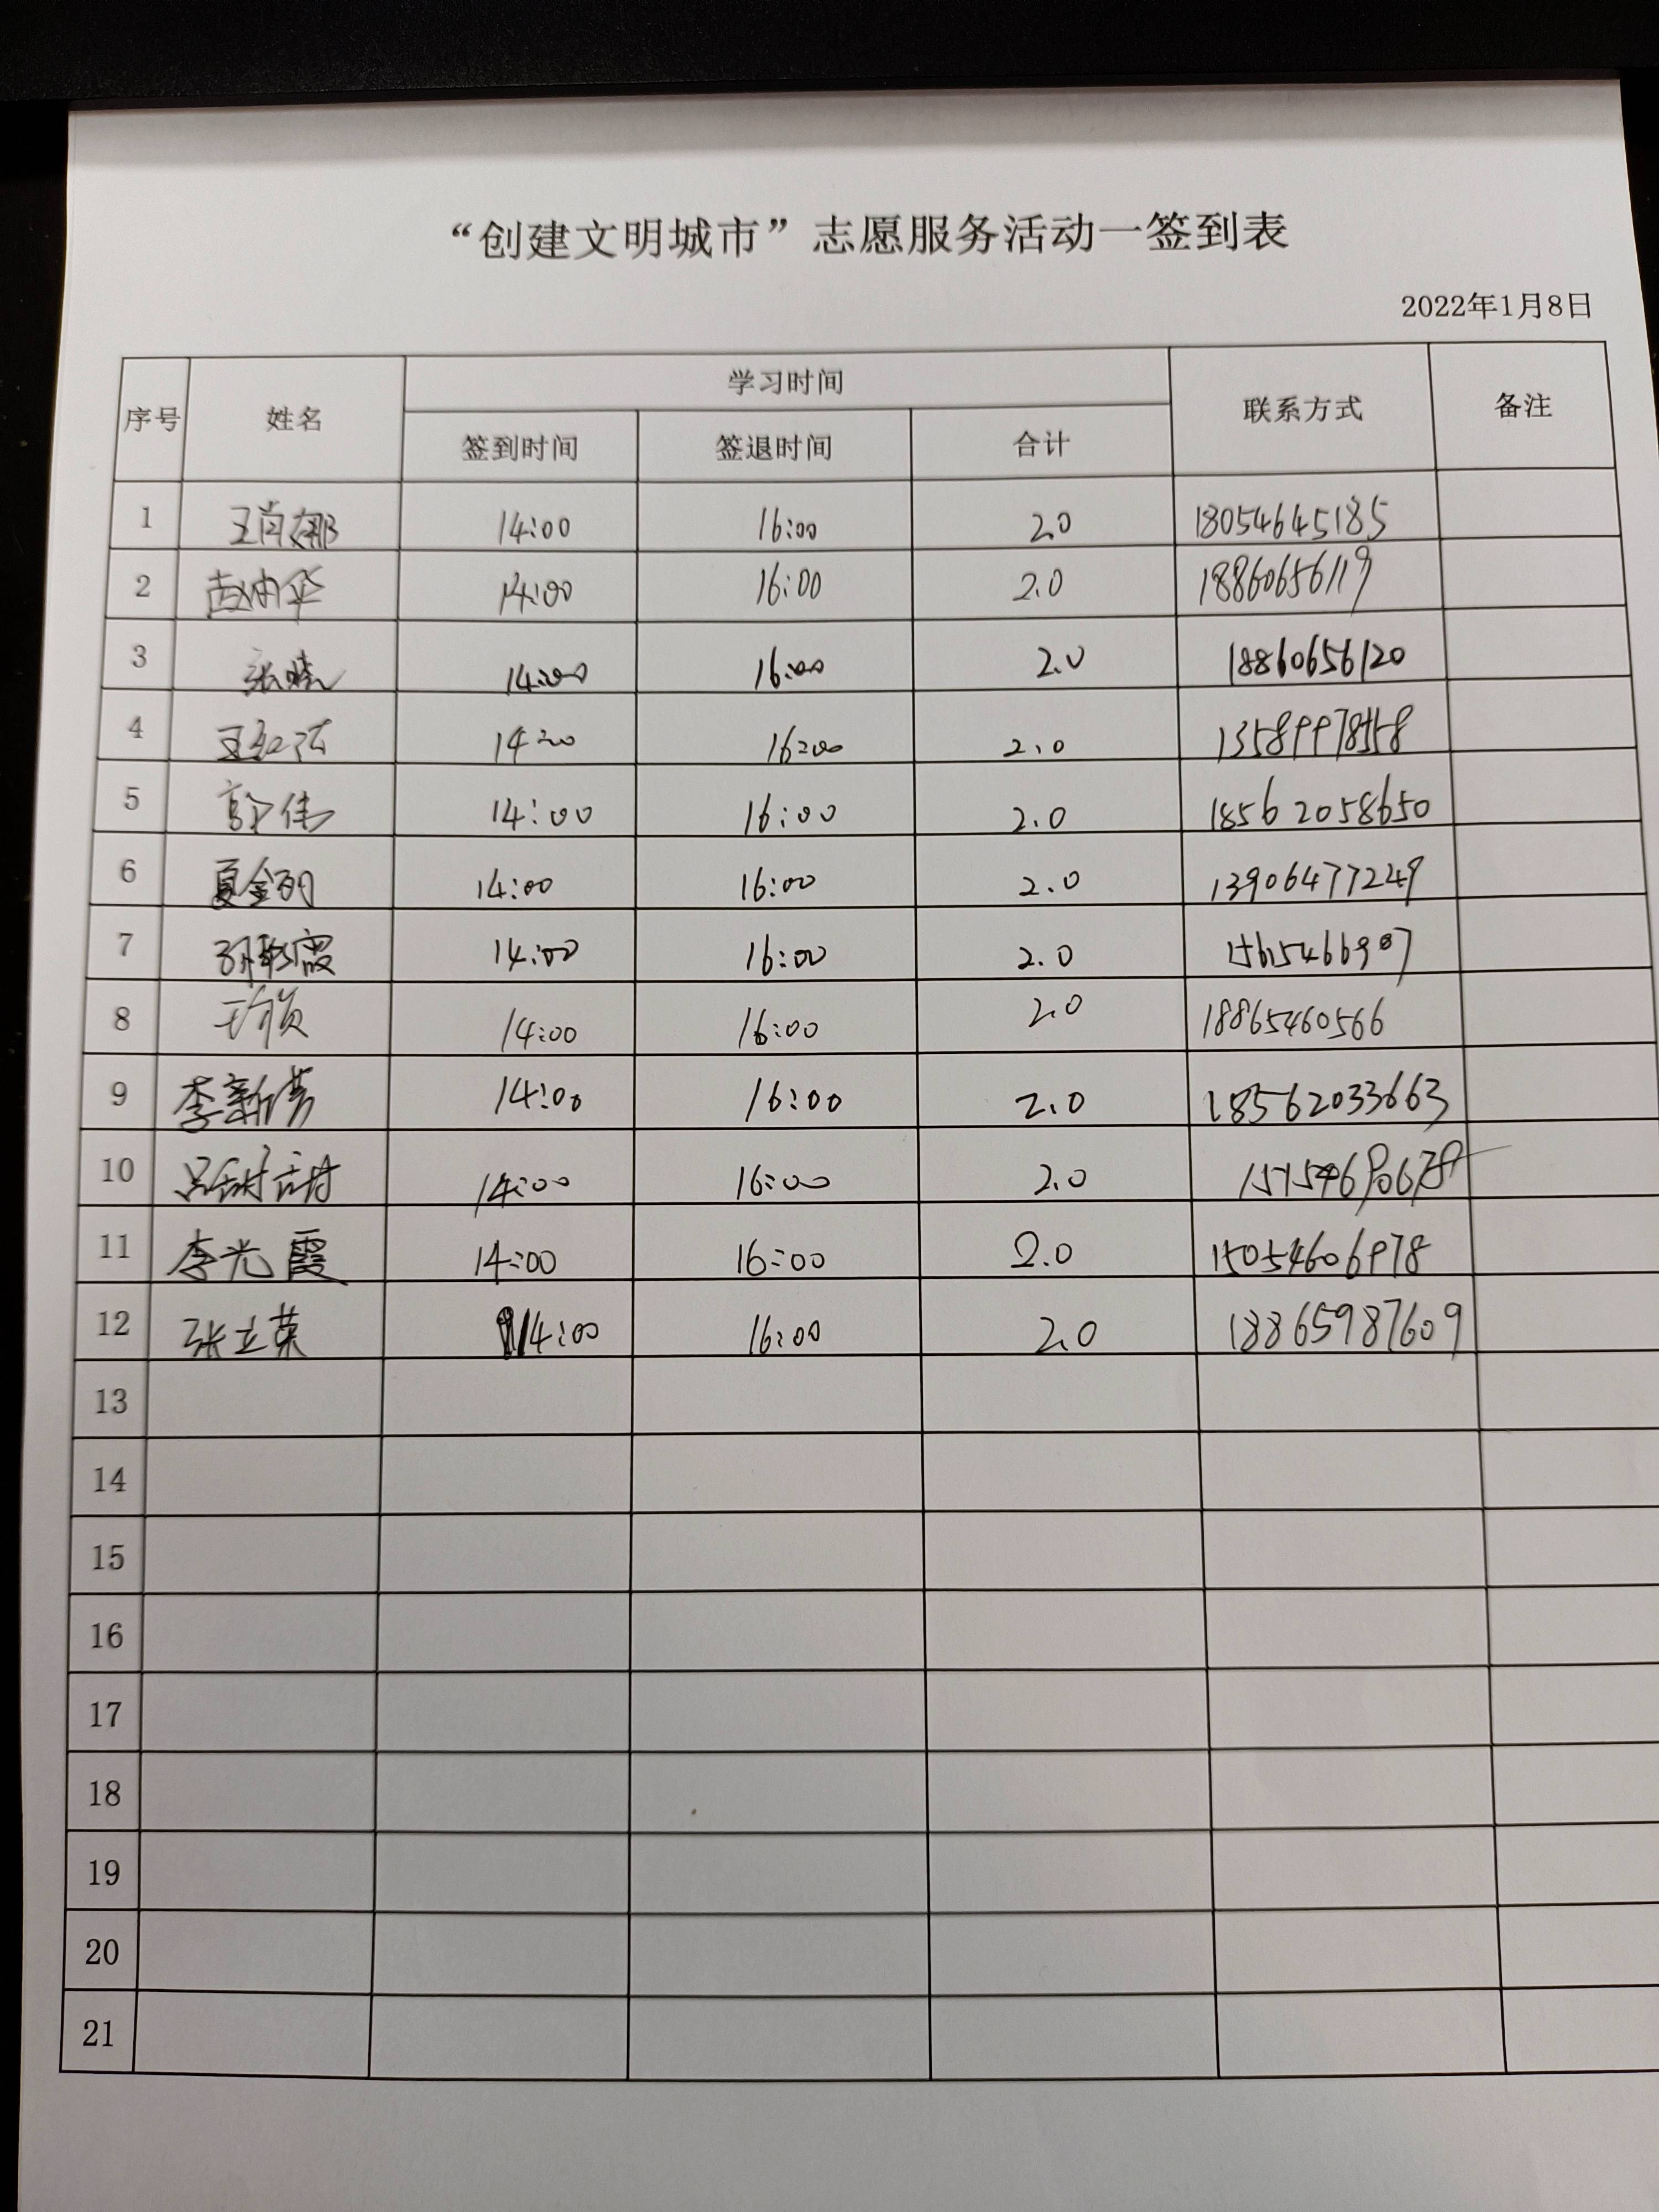 “创建文明城市”志愿服务活动一签到表
2022年1月8日
序号 姓名 学习时间 联系方式 备注
签到时间 签退时间 合计
1 王肖娜 14:00 16:00 2.0 18054645185
2 14:00 16:00 2.0 18860656119
3 张晓 14:00 16:00 2.0 18860656120
4 14:00 16:00 2.0
5 郭伟 14:00 16:00 2.0 18562058650
6 夏金列 14:00 16:00 2.0 13906477249
7 14:00 16:00 2.0 15615466907
8 14:00 16:00 2.0 18865460566
9 李新芳 14:00 16:00 2.0 18562033663
10 吕甜甜 14:00 16:00 2.0
11 李光霞 14:00 16:00 2.0 15054606978
12 张立荣 14:00 16:00 2.0 18865987609
13
14
15
16
17
18
19
20
21